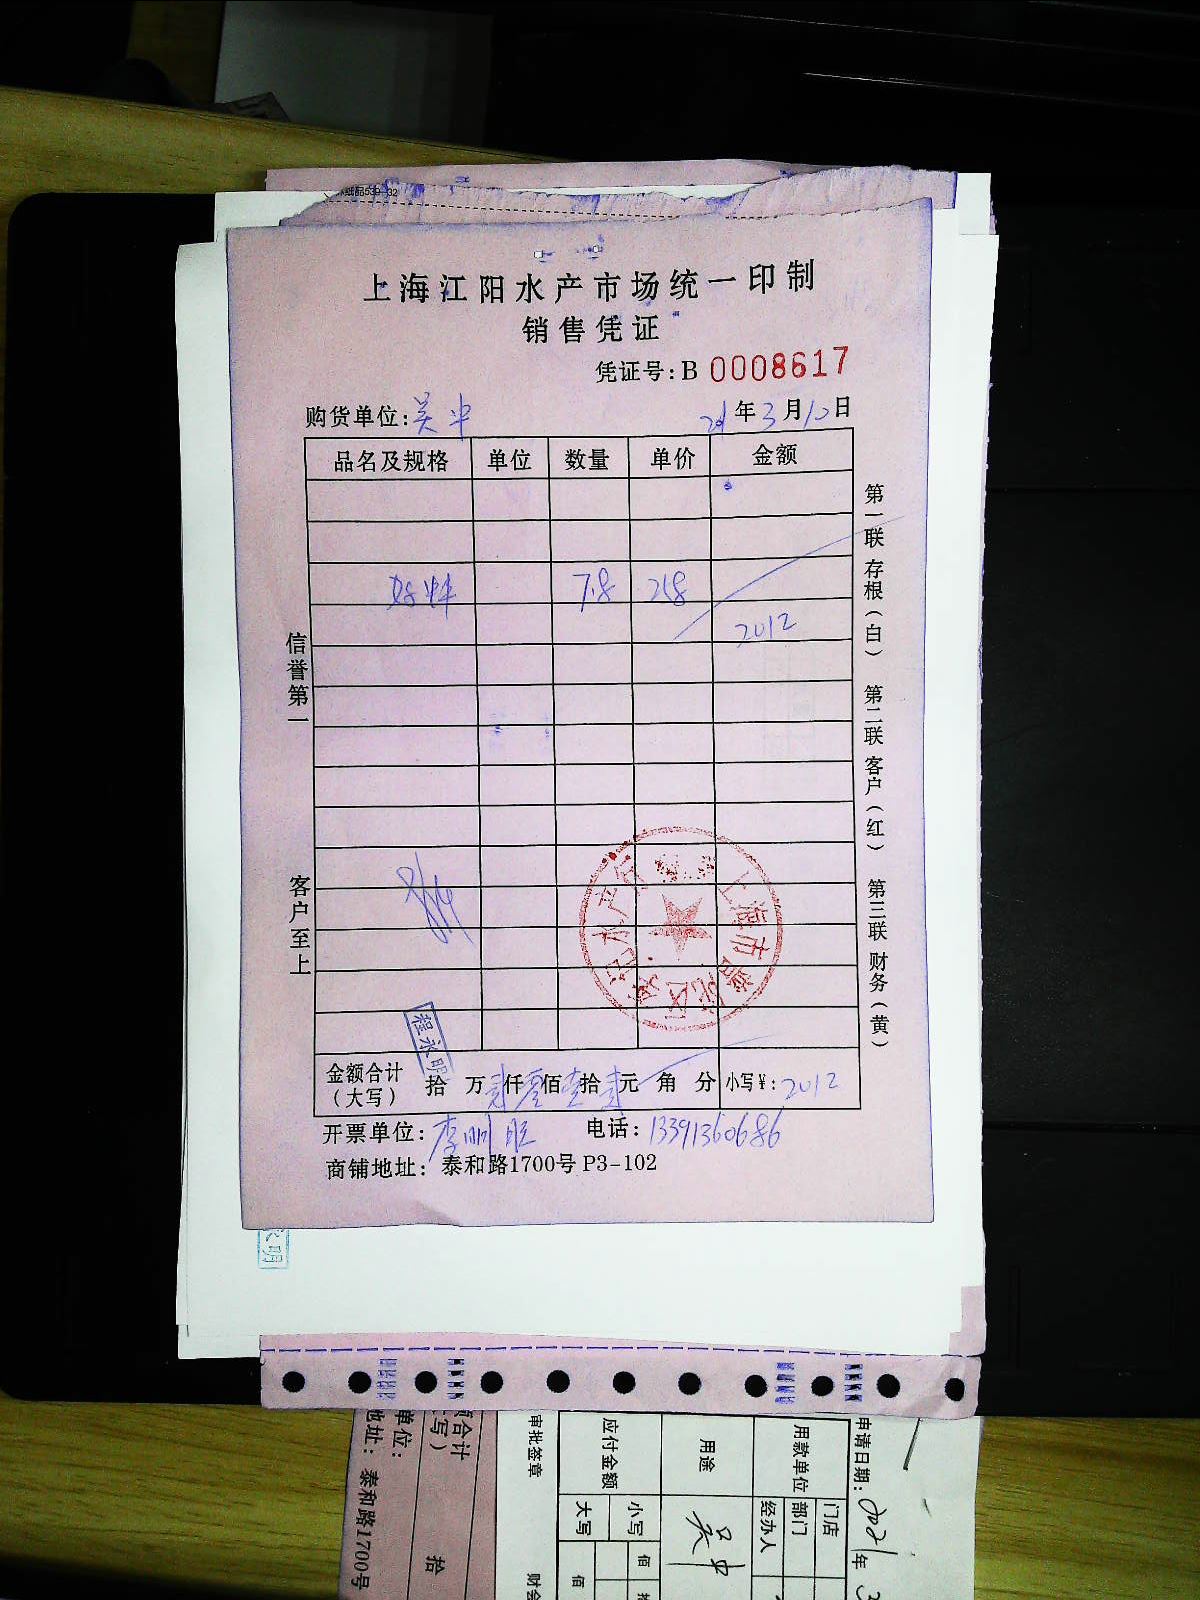 上海江阳水产市场统一印制
销售凭证
凭证号:B 0008617
购货单位:吴中 21年3月10日
品名及规格 单位 数量 单价 金额
7.8 258
2012
信誉第一
客户至上
第一联 存根(白) 第二联 客户(红) 第三联 财务(黄)
程永明
金额合计(大写) 拾 万贰仟零佰壹拾贰元 角 分 小写¥:2012
开票单位:李明 电话:13391360686
商铺地址:泰和路1700号P3-102
永明
合计
写)
单位:
地址:泰和路1700号
拾
申请日期:2021年3
用款单位 门店
部门
经办人
用途 吴中
应付金额 小写 佰
大写 佰
审批签章 财会